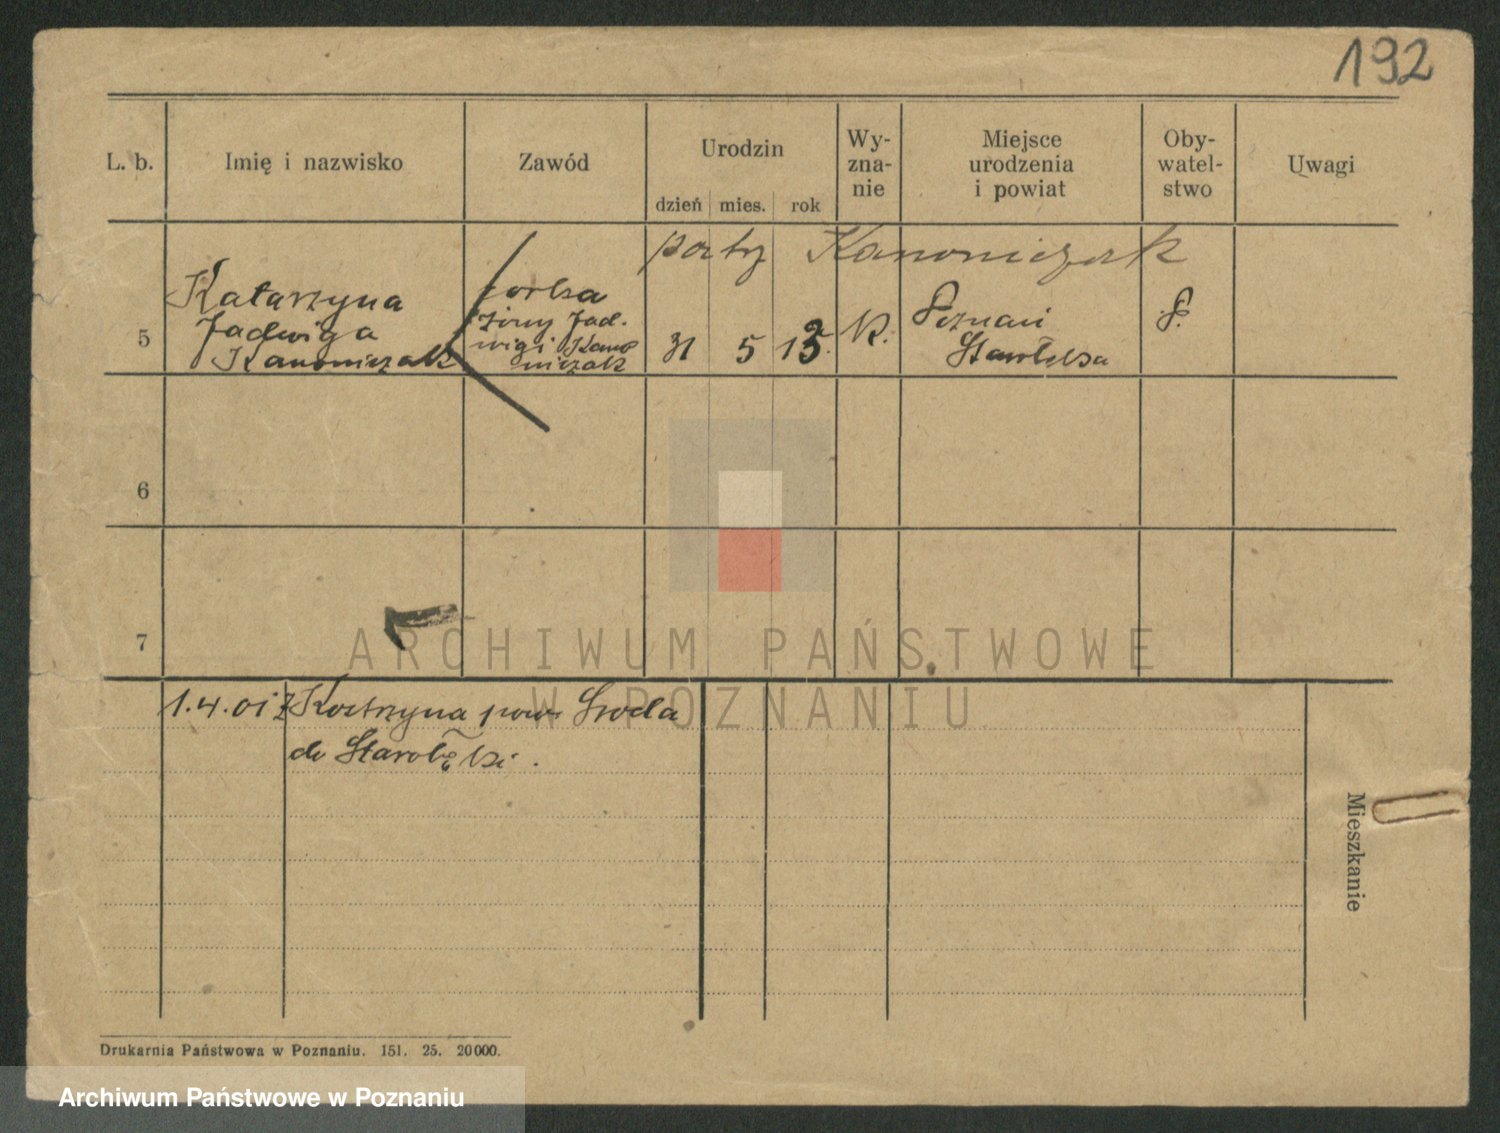 192
L. b. Imię i nazwisko Zawód Urodzin dzień mies. rok Wy-zna-nie Miejsce urodzenia i powiat Oby-watel-stwo Uwagi
patrz Kanoniczak
5 Katarzyna Jadwiga Kanoniczak córka żony Jadwigi Kanoniczak 31 5 K. Poznań Starołęka P.
6
7
1.4.01 z Kostrzyna pow. Środa
do Starołęki.
Mieszkanie
Drukarnia Państwowa w Poznaniu. 151. 25. 20000.
ARCHIWUM PAŃSTWOWE
W POZNANIU
Archiwum Państwowe w Poznaniu